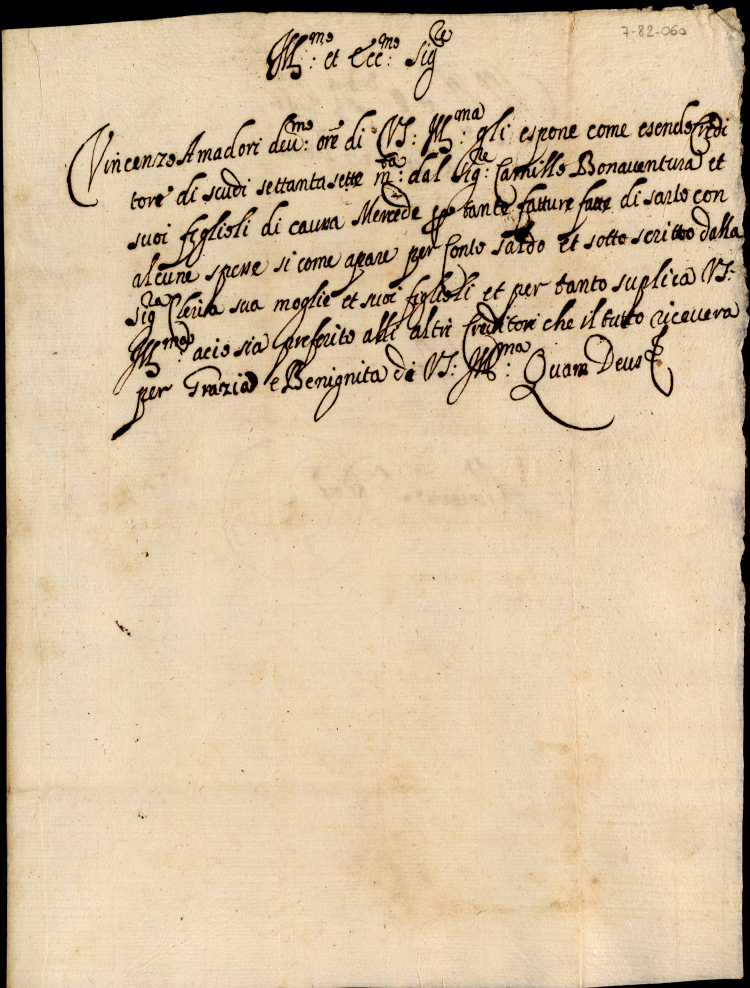 7-82-060
Ill:mo et Ecc:mo Sigre
Vincenzo Amadori deu:mo ore di VS: Ill:ma gli espone come esendo Credi
tore di scudi settanta sette m:ta dal Sig:re Camillo Bonaventura et
suoi figlioli di causa Mercede per tante fatture fatte di sarto con
alcune spese si come apare per Conto saldo et sotto scritto dalla
Sigra Clelia sua moglie et suoi figlioli et per tanto suplica VS:
Ill:mo acio sia preferito alli altri Creditori che il tutto ricevera
per Grazia e Benignita di VS: Ill:ma Quam Deus